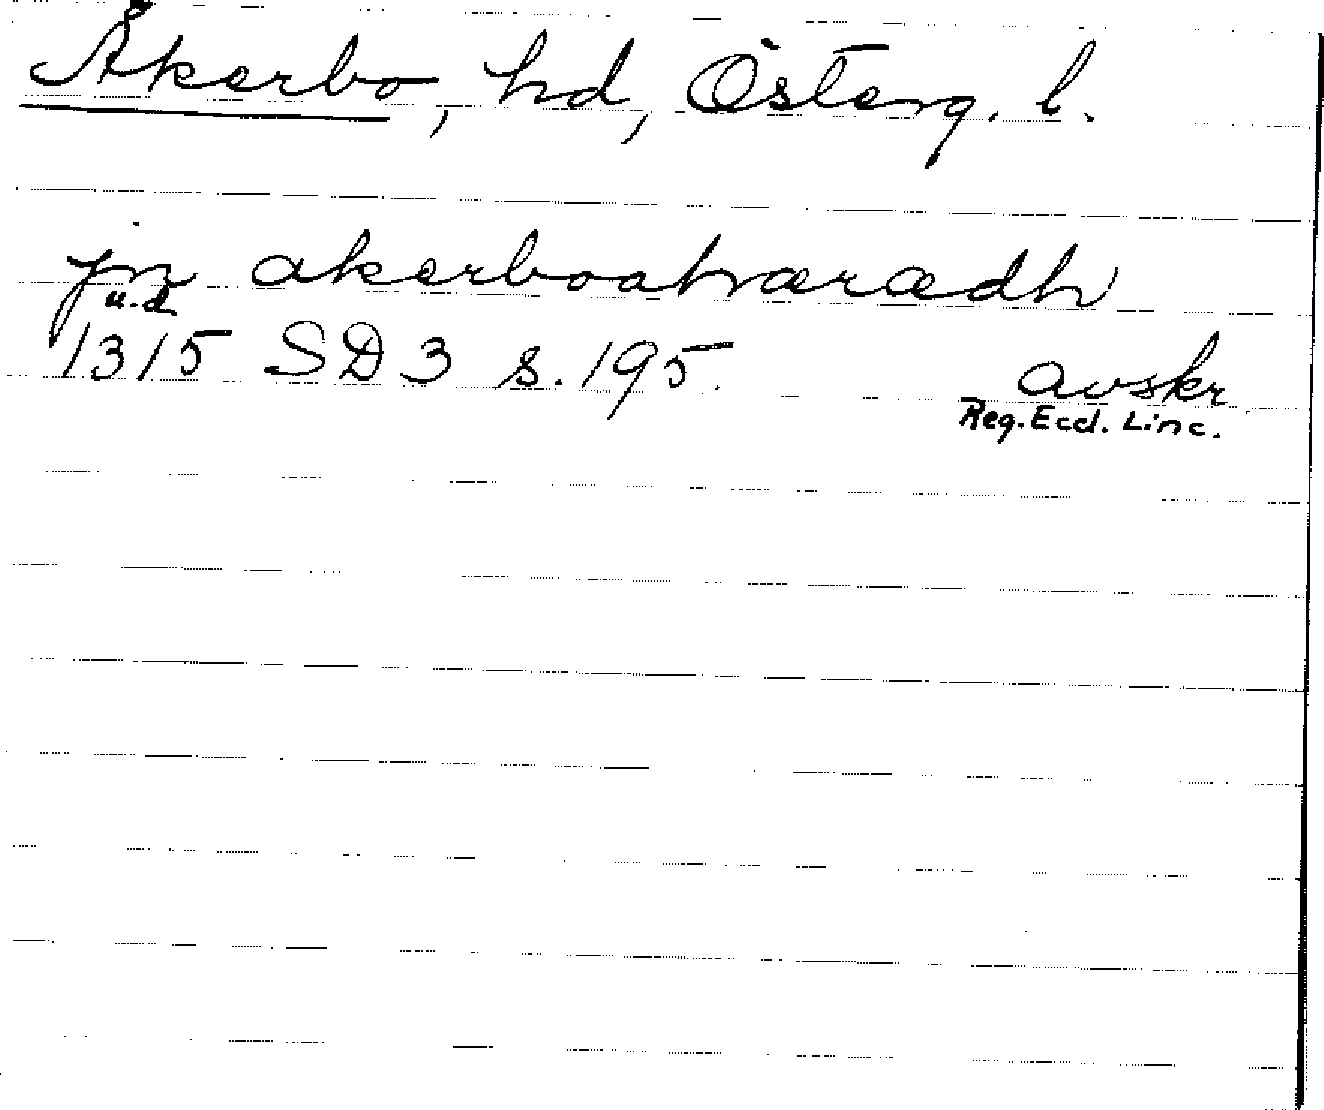 Åkerbo, hd, Österg. l.
jn akerboahæradh
u.d
1315 SD 3 s. 195. avskr
Reg. Eccl. Linc.